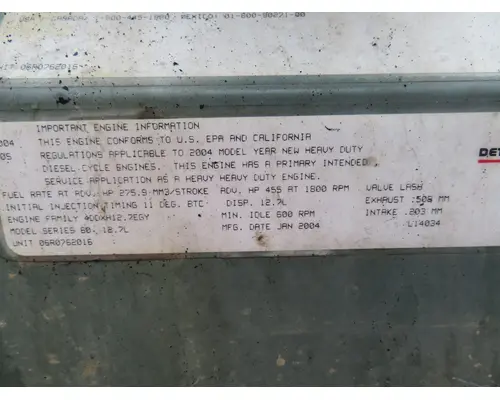 06R0762016
IMPORTANT ENGINE INFORMATION
THIS ENGINE CONFORMS TO U.S. EPA AND CALIFORNIA
REGULATIONS APPLICABLE TO 2004 MODEL YEAR NEW HEAVY DUTY
DIESEL CYCLE ENGINES. THIS ENGINE HAS A PRIMARY INTENDED
SERVICE APPLICATION AS A HEAVY HEAVY DUTY ENGINE.
FUEL RATE AT ADV. HP 275.9 MM3/STROKE ADV. HP 455 AT 1800 RPM VALVE LASH
INITIAL INJECTION TIMING 11 DEG. BTC DISP. 12.7L EXHAUST .508 MM
ENGINE FAMILY 4DDXH12.7EGY MIN. IDLE 600 RPM INTAKE .203 MM
MODEL SERIES 60, 12.7L MFG. DATE JAN 2004 L14034
UNIT 06R0762016
004
DET